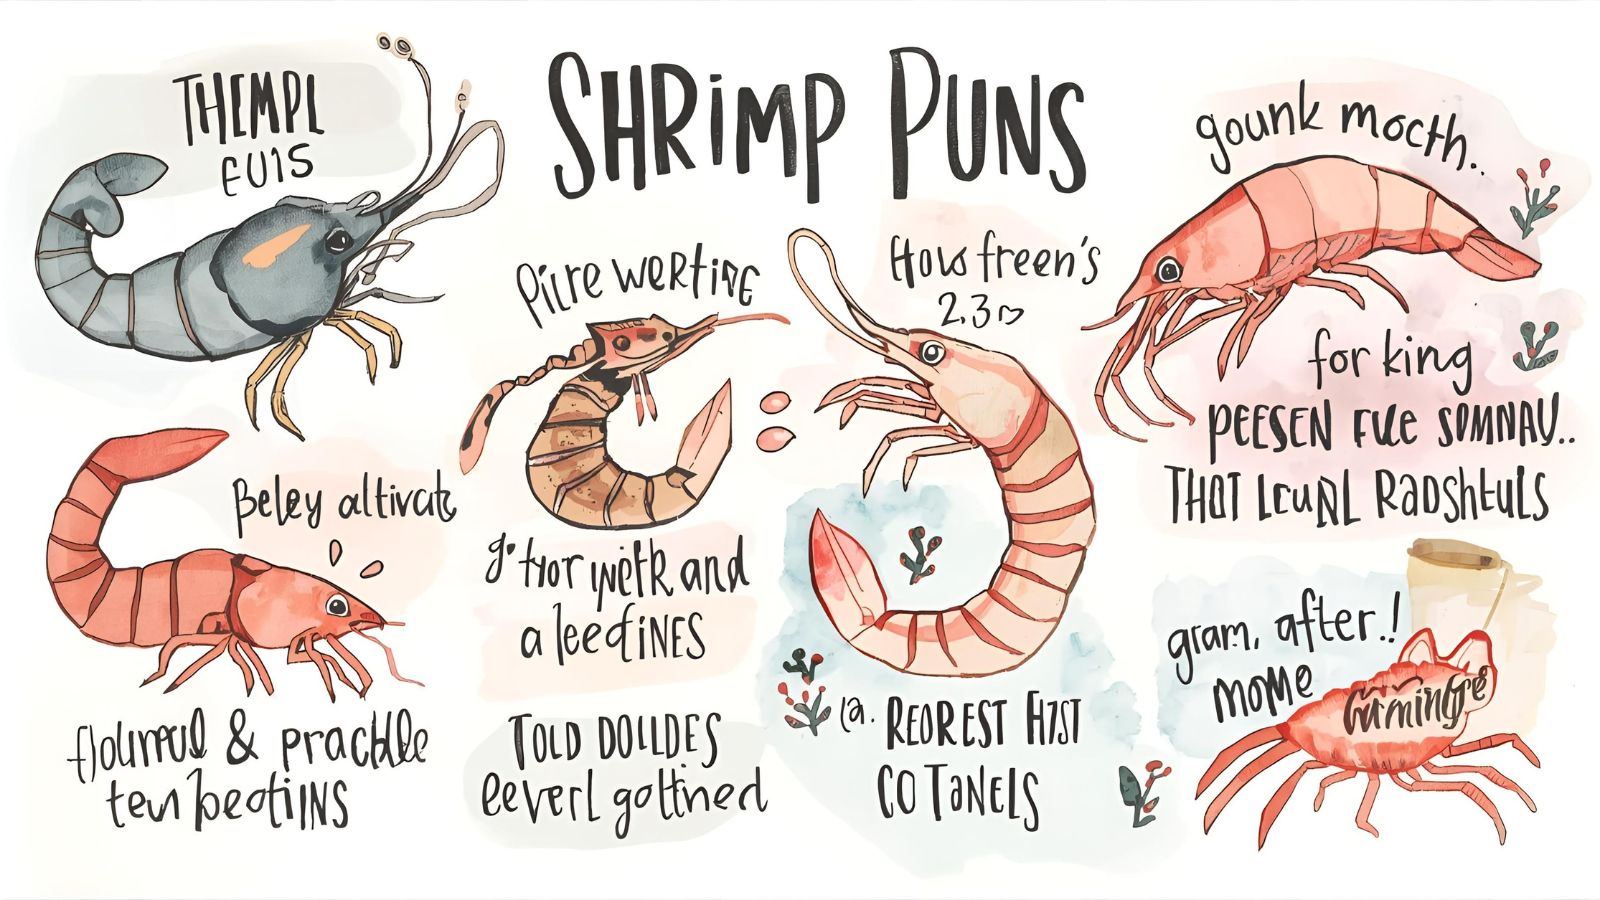 SHRIMP PUNS
THEMPL
EUIS
gounk mocth..
Pilre wertive
How freen's
2.3
for king
PEESEN FUE SOMNAV..
THOT LCUNL RADSHLULS
Beley altivcats
g. tror wetk and
a leedines
gram, after.!
mome
flolmroul & prackle
ten beotiins
TOLD DOLLDES
eeverl gottined
la. REOREST HIST
CO TANELS